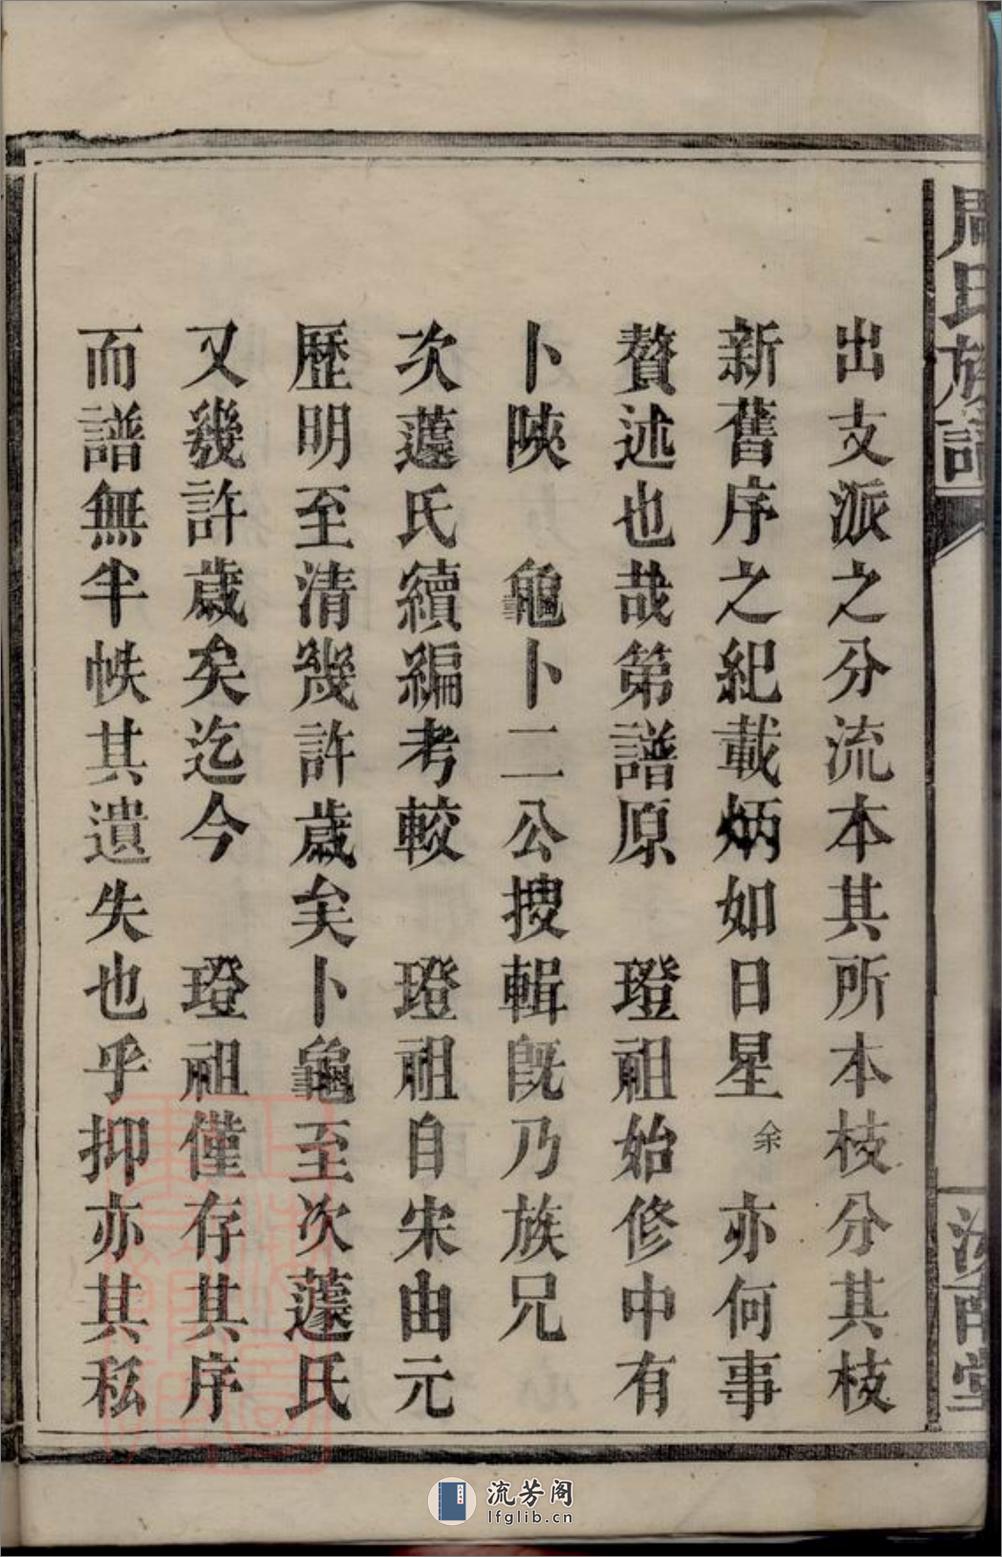 周氏族譜
汝南堂
出支派之分流本其所本枝分其枝
新舊序之紀載炳如日星余亦何事
贅述也哉第譜原　璒祖始修中有
卜陝　龜卜二公搜輯旣乃族兄
次蘧氏續編考較　璒祖自宋由元
歷明至清幾許歲矣卜龜至次蘧氏
又幾許歲矣迄今　璒祖僅存其序
而譜無半帙其遺失也乎抑亦其私
流芳阁
lfglib.cn